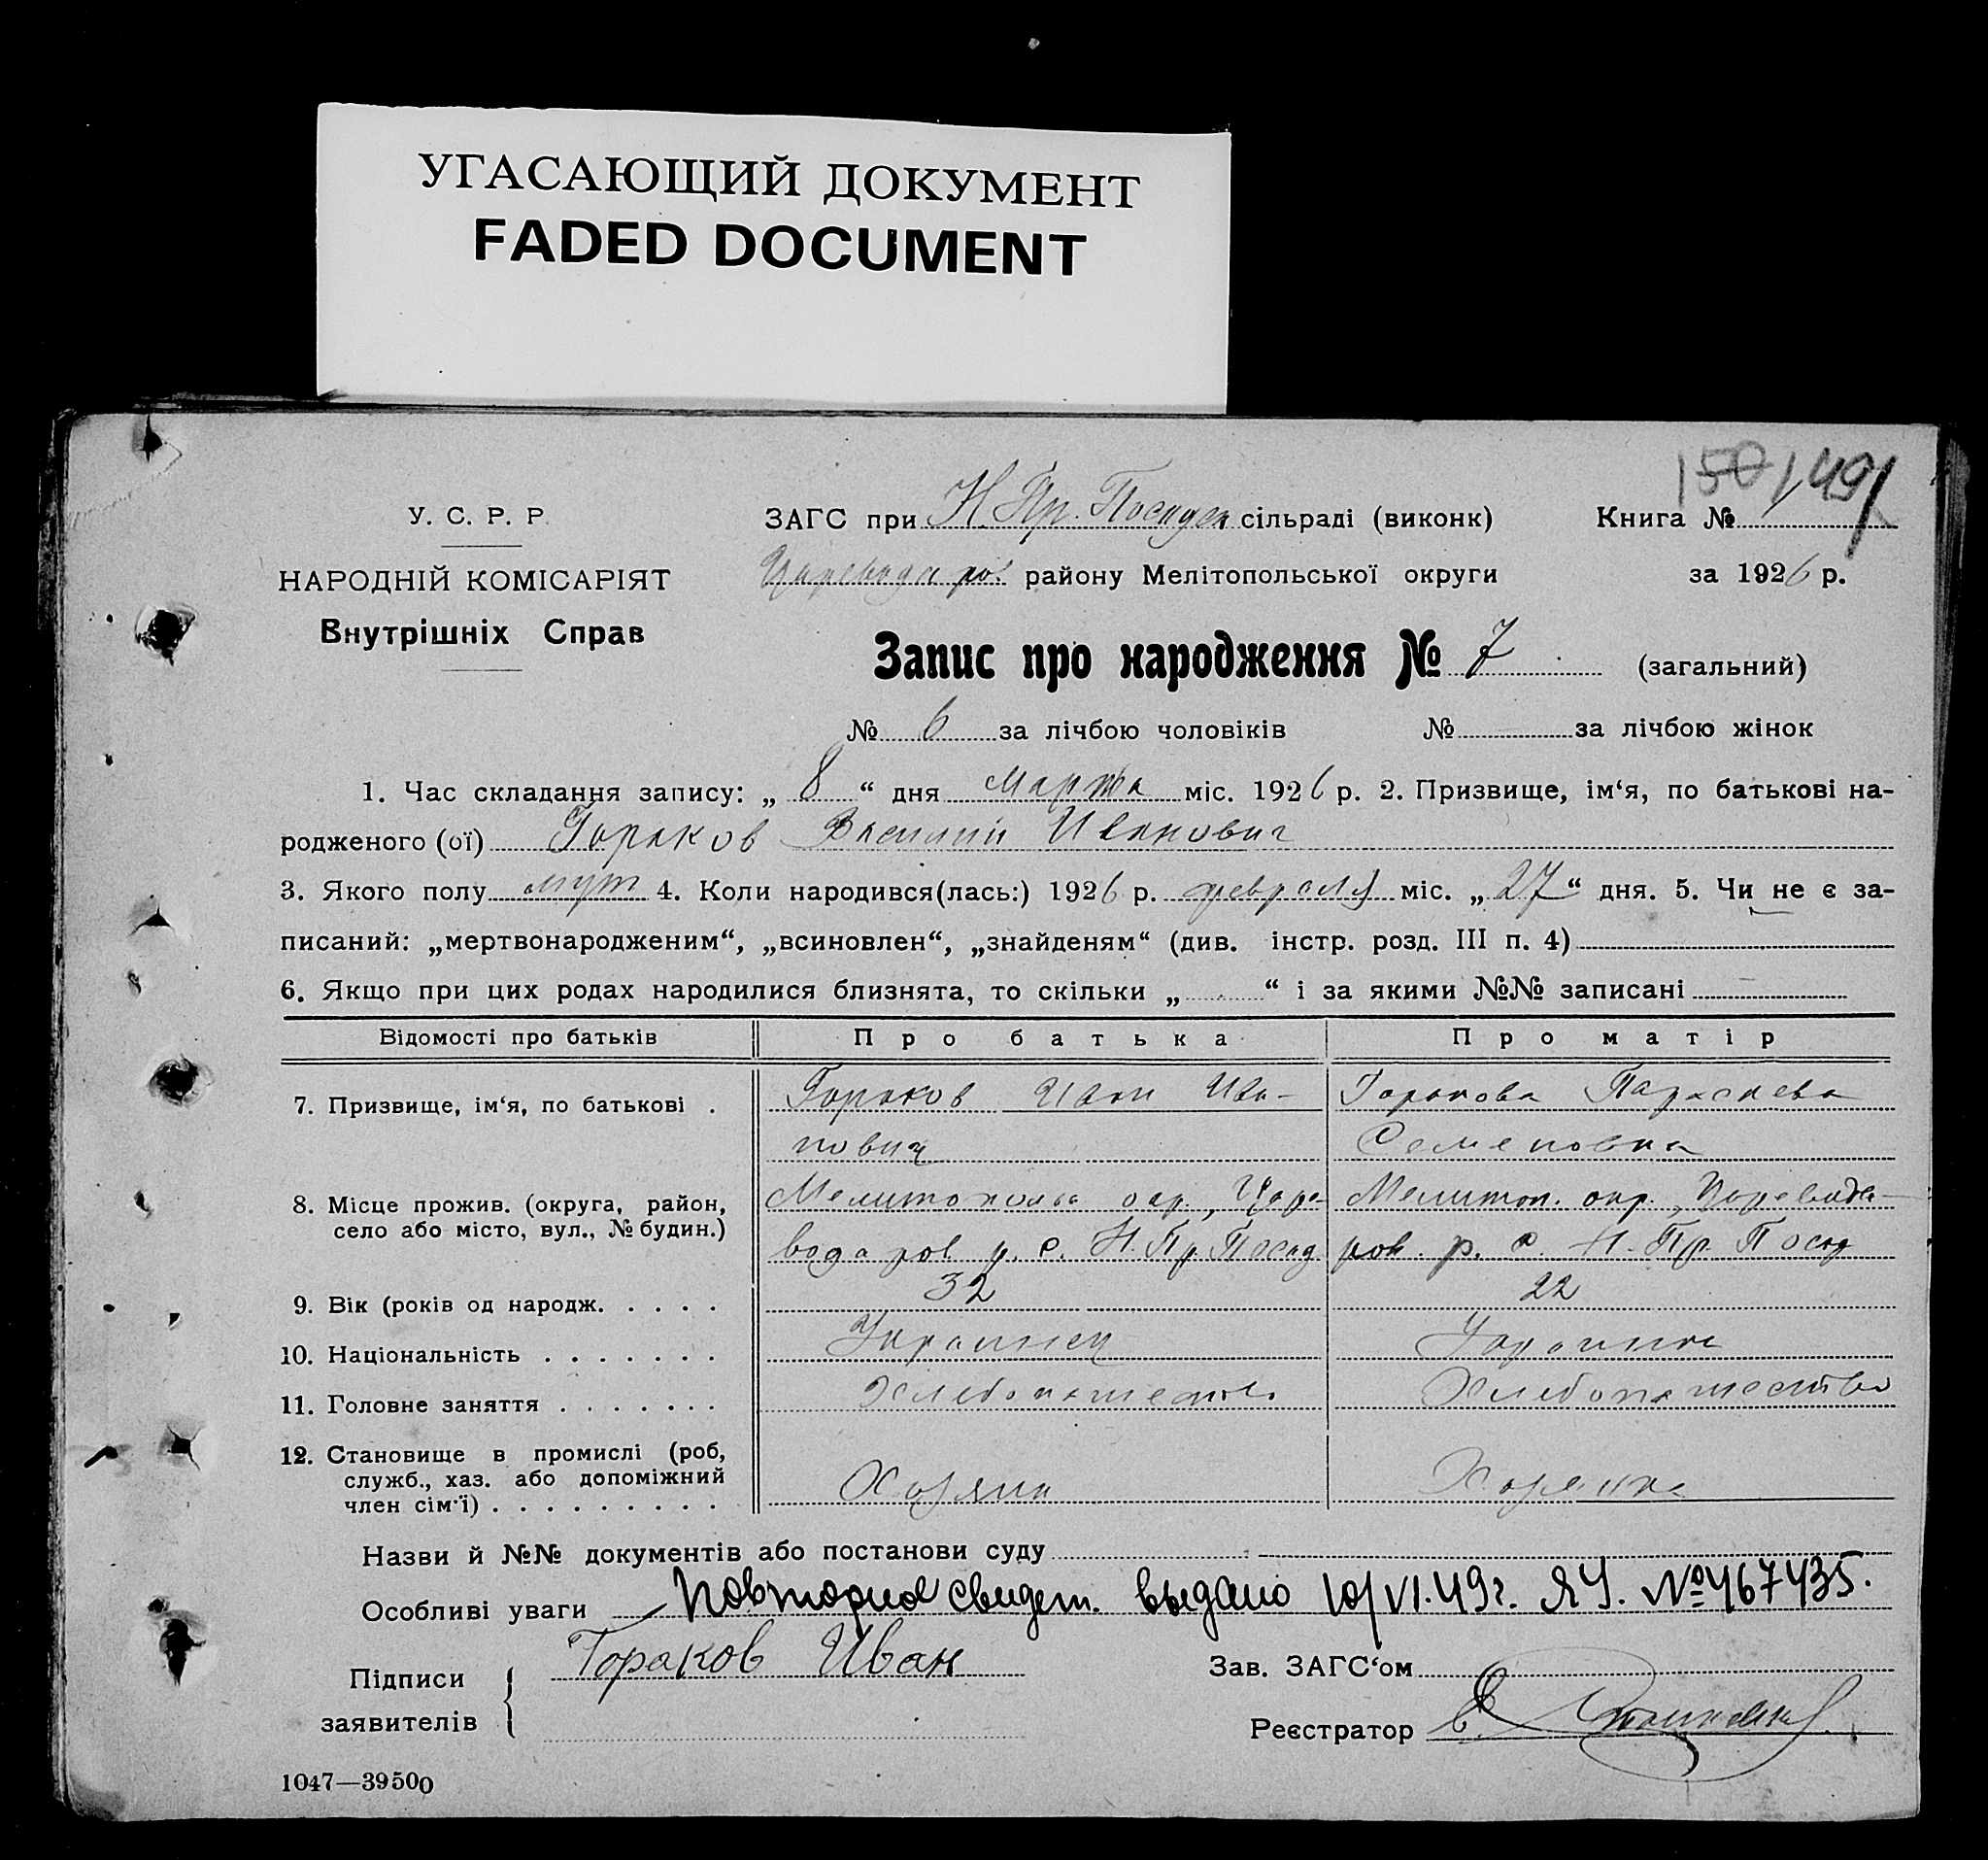 УГАСАЮЩИЙ ДОКУМЕНТ
FADED DOCUMENT
150 149
У. С. Р. Р.
НАРОДНІЙ КОМІСАРІЯТ
Внутрішніх Справ
ЗАГС при Н. Пр. сільраді (виконк) Книга №
району Мелітопольської округи за 1926 р.
Запис про народження № 7 (загальний)
№ 6 за лічбою чоловіків № за лічбою жінок
1. Час складання запису: „ 8 “ дня Марта міс. 1926 р. 2. Призвище, ім‘я, по батькові на-
родженого (ої) Гораков Василий Иванович
3. Якого полу муж 4. Коли народився(лась:) 1926 р. февраля міс. „ 27 “ дня. 5. Чи не є за-
писаний: „мертвонародженим“, „всиновлен“, „знайденям“ (див. інстр. розд. III п. 4)
6. Якщо при цих родах народилися близнята, то скільки „ “ і за якими №№ записані
Відомості про батьків Про батька Про матір
7. Призвище, ім‘я, по батькові . Гораков Иван Ива- Горакова Параскева
нович Семеновна
8. Місце прожив. (округа, район, село або місто, вул., № будин.) Мелитополь окр., Царе- Мелитоп. окр.,
водаров. р. с. Н. Пр. Посад ров. р. с. Н. Пр. Посад
9. Вік (років од народж. . . . . 32 22
10. Національність . . . . . . . Украинец Украинка
11. Головне заняття . . . . . . . Хлебопашество Хлебопашество
12. Становище в промислі (роб,
служб., хаз. або допоміжний
член сім‘ї) . . . . . . . . . Хозяин Хозяйка
Назви й №№ документів або постанови суду
Особливі уваги Повторное свидет. выдано 10/VI.49г. ЯЧ. № 467435.
Підписи
заявителів
Гораков Иван
Зав. ЗАГС‘ом
Реєстратор
1047—39500